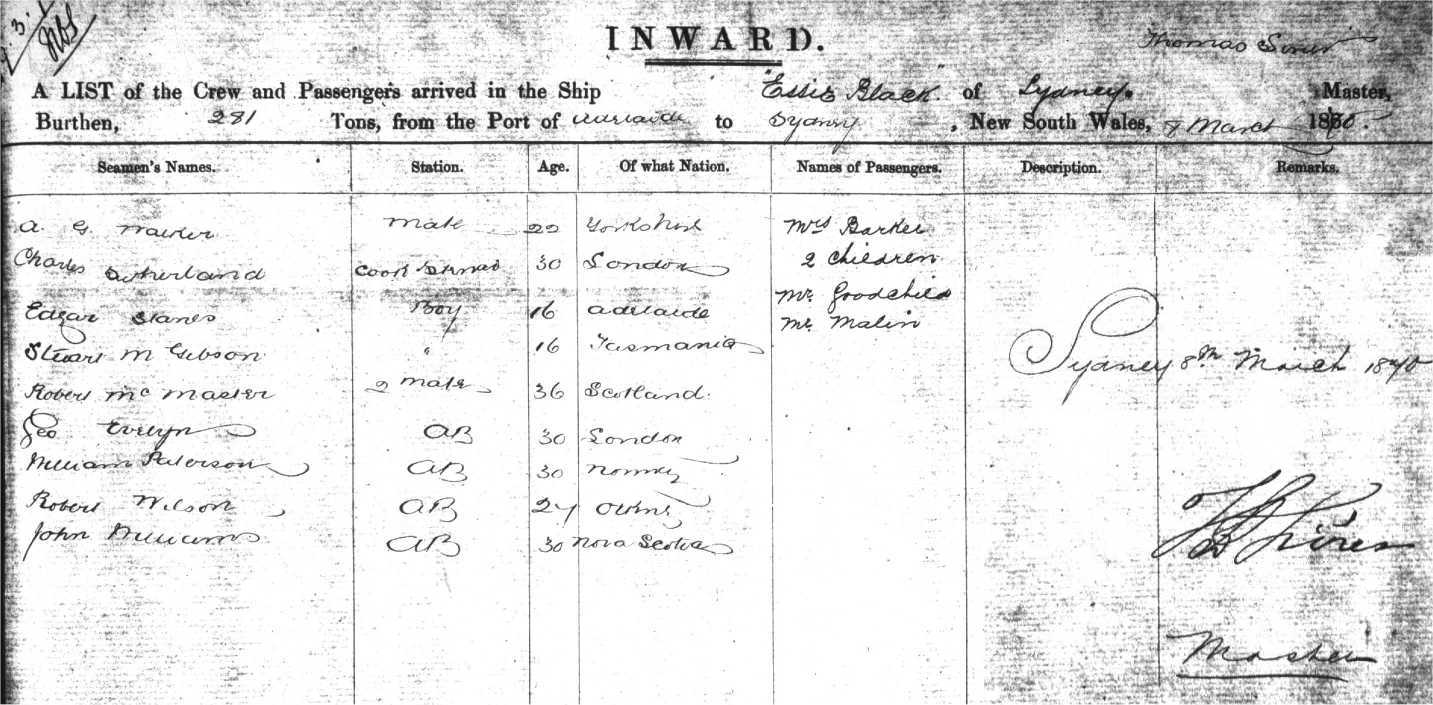 INWARD.
Thomas
A LIST of the Crew and Passengers arrived in the Ship "Essie Black" of Sydney. Master,
Burthen, 281 Tons, from the Port of to Sydney, New South Wales, 8 March 1870.
Seamen's Names. Station. Age. Of what Nation. Names of Passengers. Description. Remarks.
A. G. Mate 22 Yorkshire Mrs Barker
Charles Sutherland Cook 30 London 2 Children
Mr Goodchild
Edgar Stanes Boy 16 Adelaide Mr Malin
Stuart M Gibson " 16 Tasmania
Sydney 8th March 1870
Robert Mc Master 2 Mate 36 Scotland
Geo Evelyn AB 30 London
William Paterson AB 30
Robert Wilson AB 27
John Williams AB 30 Nova Scotia
Master